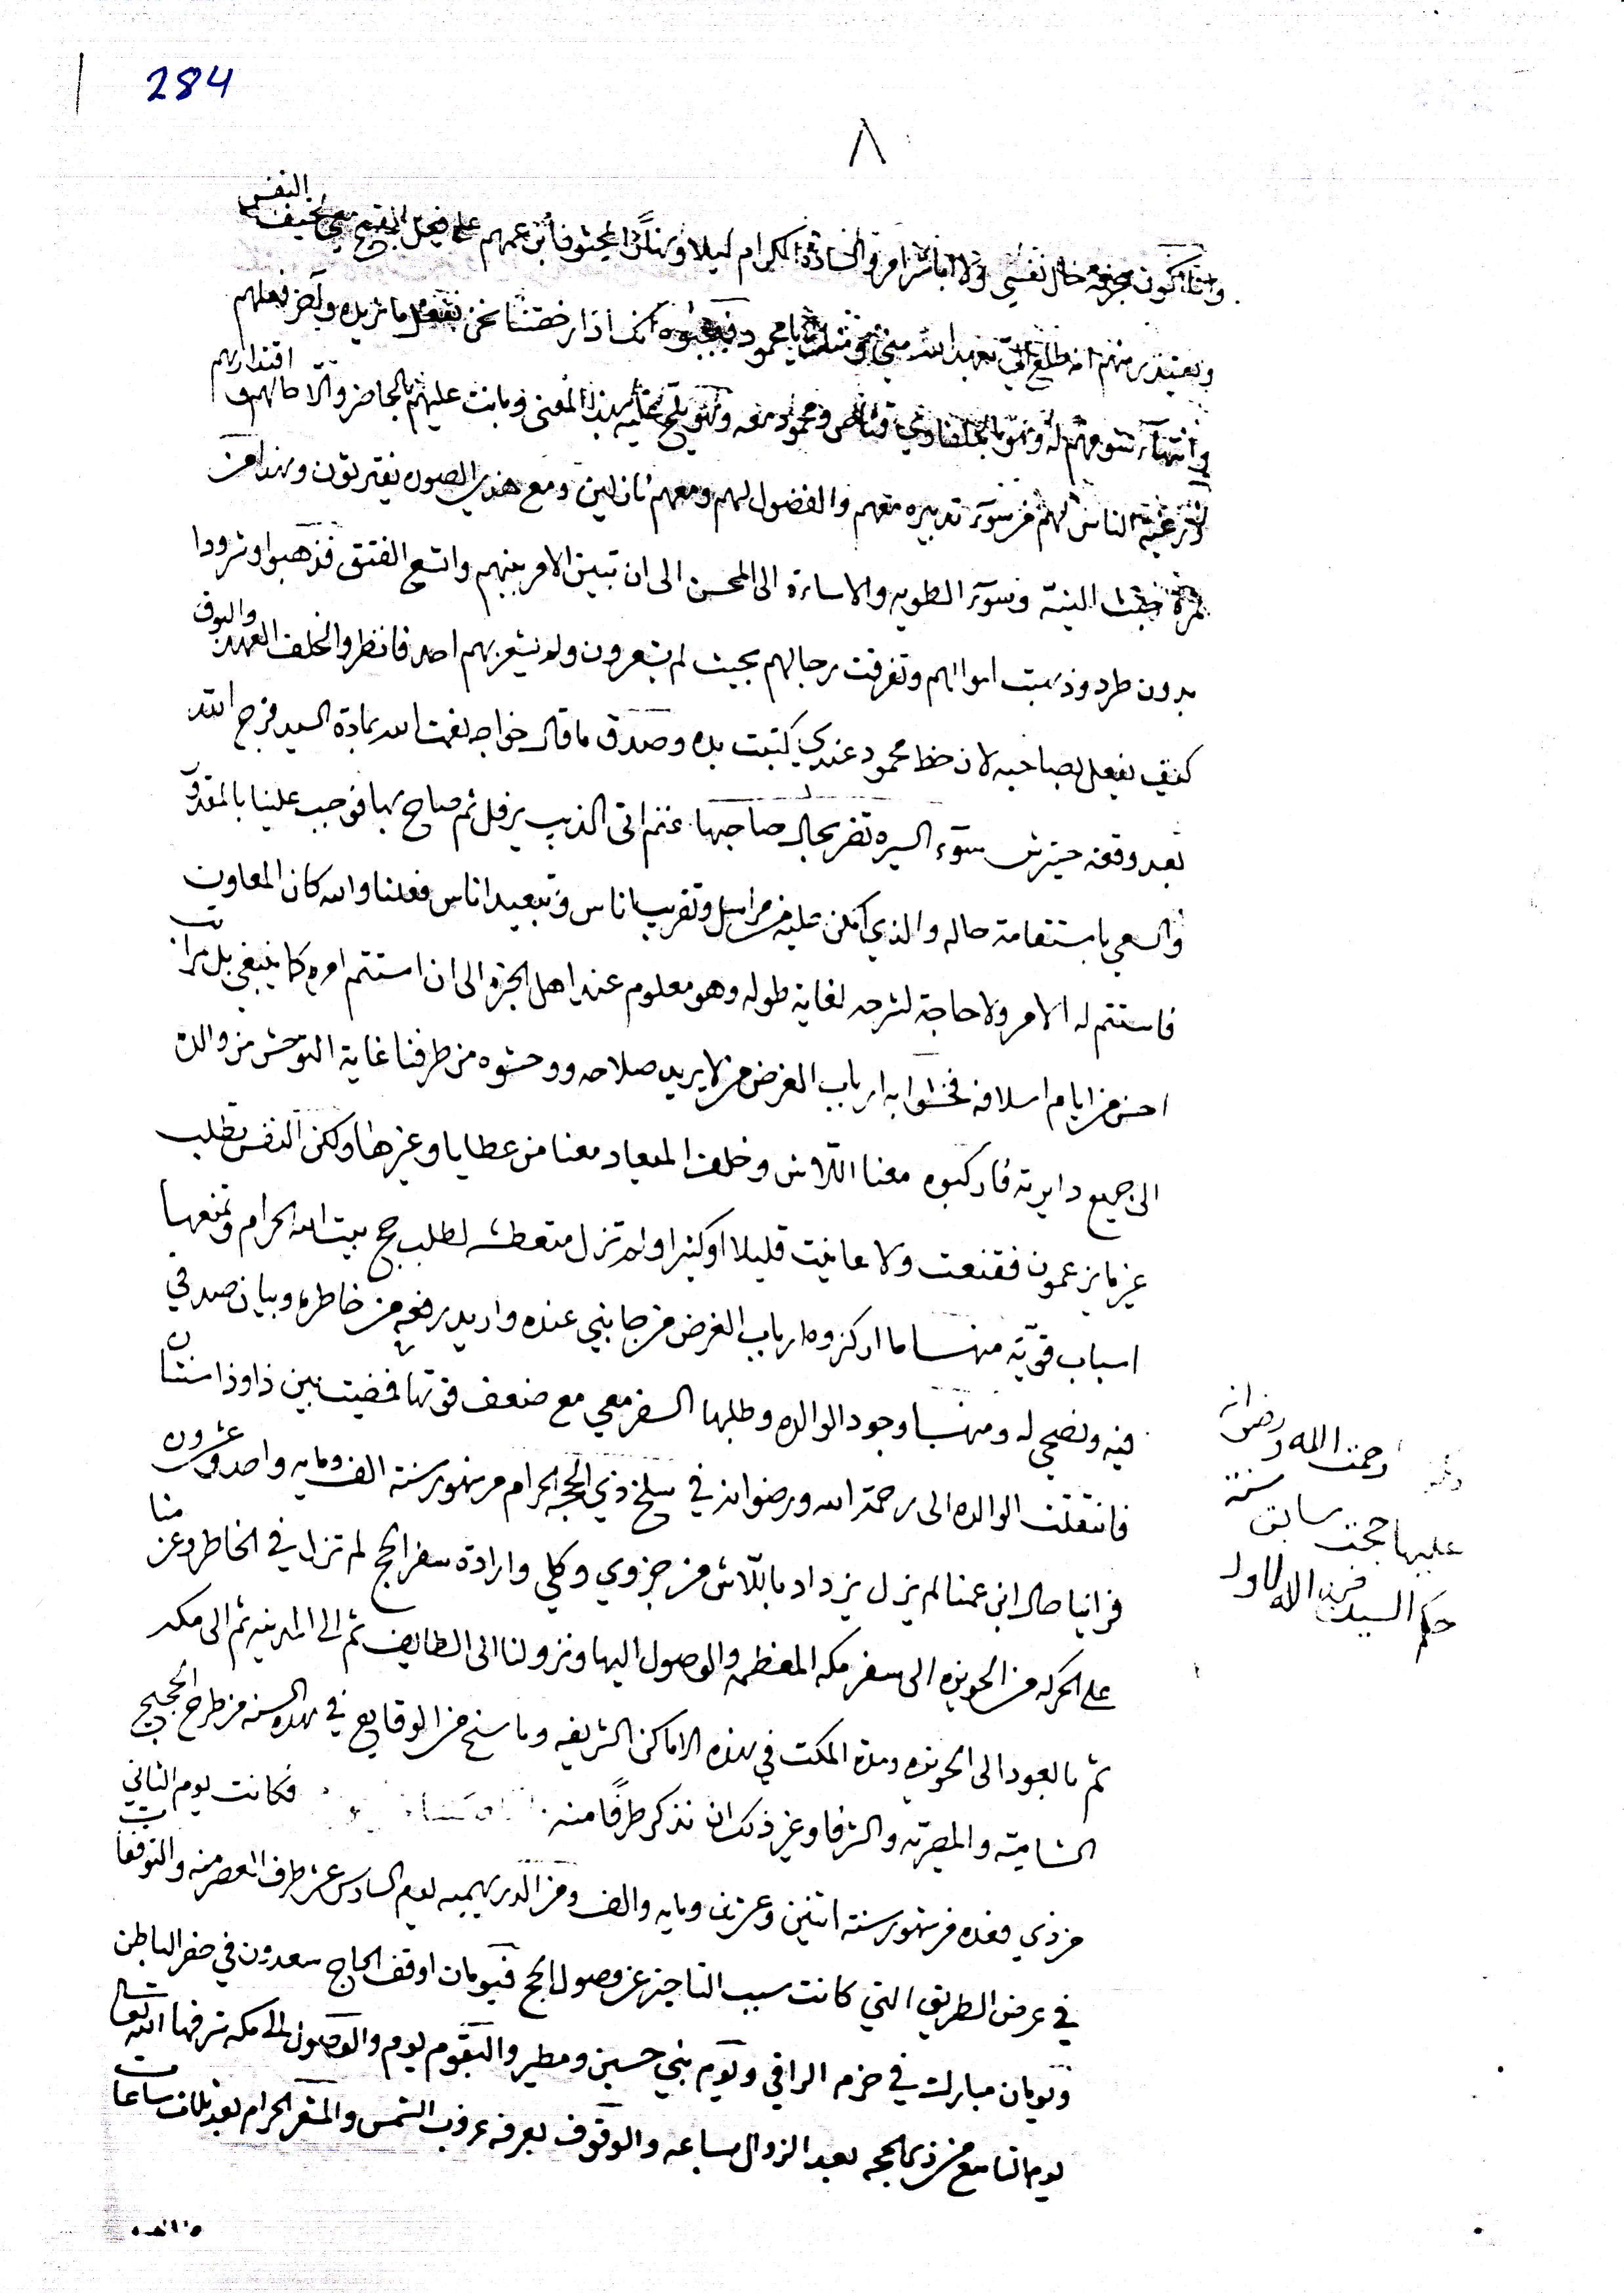 284
٨
وانا اكون بحرفه خال نفسي ولا اباشر امر والسادة الكرام ليلا ونهارًا عمهم على فعل القبيح النفس
ويعتذر منهم انه طلع تعهد الله مني يا محمود انك اذا رخصتنا نحن نفعل ما نريد وآخر فعلهم
وانتهاء له ومحمود معه بهذا المعنى وبانت عليهم بالحاضر والا مالهم اقتدار بهم
الناس لهم من سوء تدبيره معهم والفضول لهم ومعهم نازلين ومع هذي الصوره يفترقون وهذا من
ثمرة خبث النيّة وسوء الطويه والاساءة الى المحسن الى ان تبين الامر بينهم واتسع الفتق فذهبوا وشردوا
بدون طرد وذهبت اموالهم وتفرقت رجالهم بحيث لم يشعرون ولم يشعر بهم احد فانظروا لخلف العهد والبوق
كيف يفعل بصاحبه لان خط محمود عندي كتبت بيده وصدق ما قال خواجه نعمت الله بمادة السيد فرج الله
بعد وقعة سوء السيره تضر بحال صاحبها غنم اتى الذيب يرفل ثم صاح بها فوجب علينا بالمقدور
والسعي باستقامة حاله والذي امكن عليه من مراسيل وتقريب اناس وتبعيد اناس فعلنا والله كان المعاون
فاستتم له الامر ولا حاجة لشرحه لغاية طوله وهو معلوم عند اهل الخبره الى ان استتم امره كما ينبغي بل مراتب
احسن من ايام اسلافه فخشوا به ارباب الغرض من لا يريد صلاحه ووحشوه من طرفنا غاية التوحش من والدة
الى جميع دايرته فاركبوه معنا اللاش وخلف الميعاد معنا من عطايا وغيرها ولكن النفس تطلب
عز ما يزعمون فقنعت ولا عاينت قليلا او كثيرا ولم تزل متعطشه لطلب حج بيت الله الحرام وتمنعها
اسباب قويّة منها ما اركزوه ارباب الغرض من جانبي عنده واريد رفعه من خاطره وبيان صدقي
فيه ونصحي له ومنها وجود الوالده وطلبها السفر معي مع ضعف قوتها فمضيت بين ذا وذا سنتان
فانتقلت الوالده الى رحمة الله ورضوانه في سلخ ذي الحجه الحرام من شهور سنة الف ومايه واحد وعشرون
فراينا حال ابن عمنا لم يزل يزداد باللاش من جزوي وكلي وارادة سفر الحج لم تزل في الخاطر وعزمنا
على الحركه من الحويزه الى سفر مكه المعظمه والوصول اليها ونزولنا الى الطايف ثم الى المدينه ثم الى مكه
ثم بالعود الى الحويزه ومدة المكث في هذه الاماكن الشريفه وما سنح من الوقايع في هذه السنه من طرح الحجيج
الشاميّه والمصريّه والشرفا وغير ذلك ان نذكر طرفًا منه فكانت يوم الثاني
من ذي قعده من شهور سنة اثنين وعشرين ومايه والف ومن الدريهميه يوم السادس عشر طرف العصر منه والتوقفات
في عرض الطريق التي كانت سبب التاخير عن وصول الحج فيومان اوقف الحاج سعدون في حفر الباطن
ويومان مبارك في خرم الراقي ويوم بني حسين ومطير والبقوم يوم والوصول الى مكه شرفها الله تعالى
يوم التاسع من ذي الحجه بعد الزوال بساعه والوقوف بعرفه غروب الشمس والمشعر الحرام بعد ثلاث ساعات
رحمت الله ورضوانه
عليها حجت سابق سنة
حكم السيد فرج الله الاول